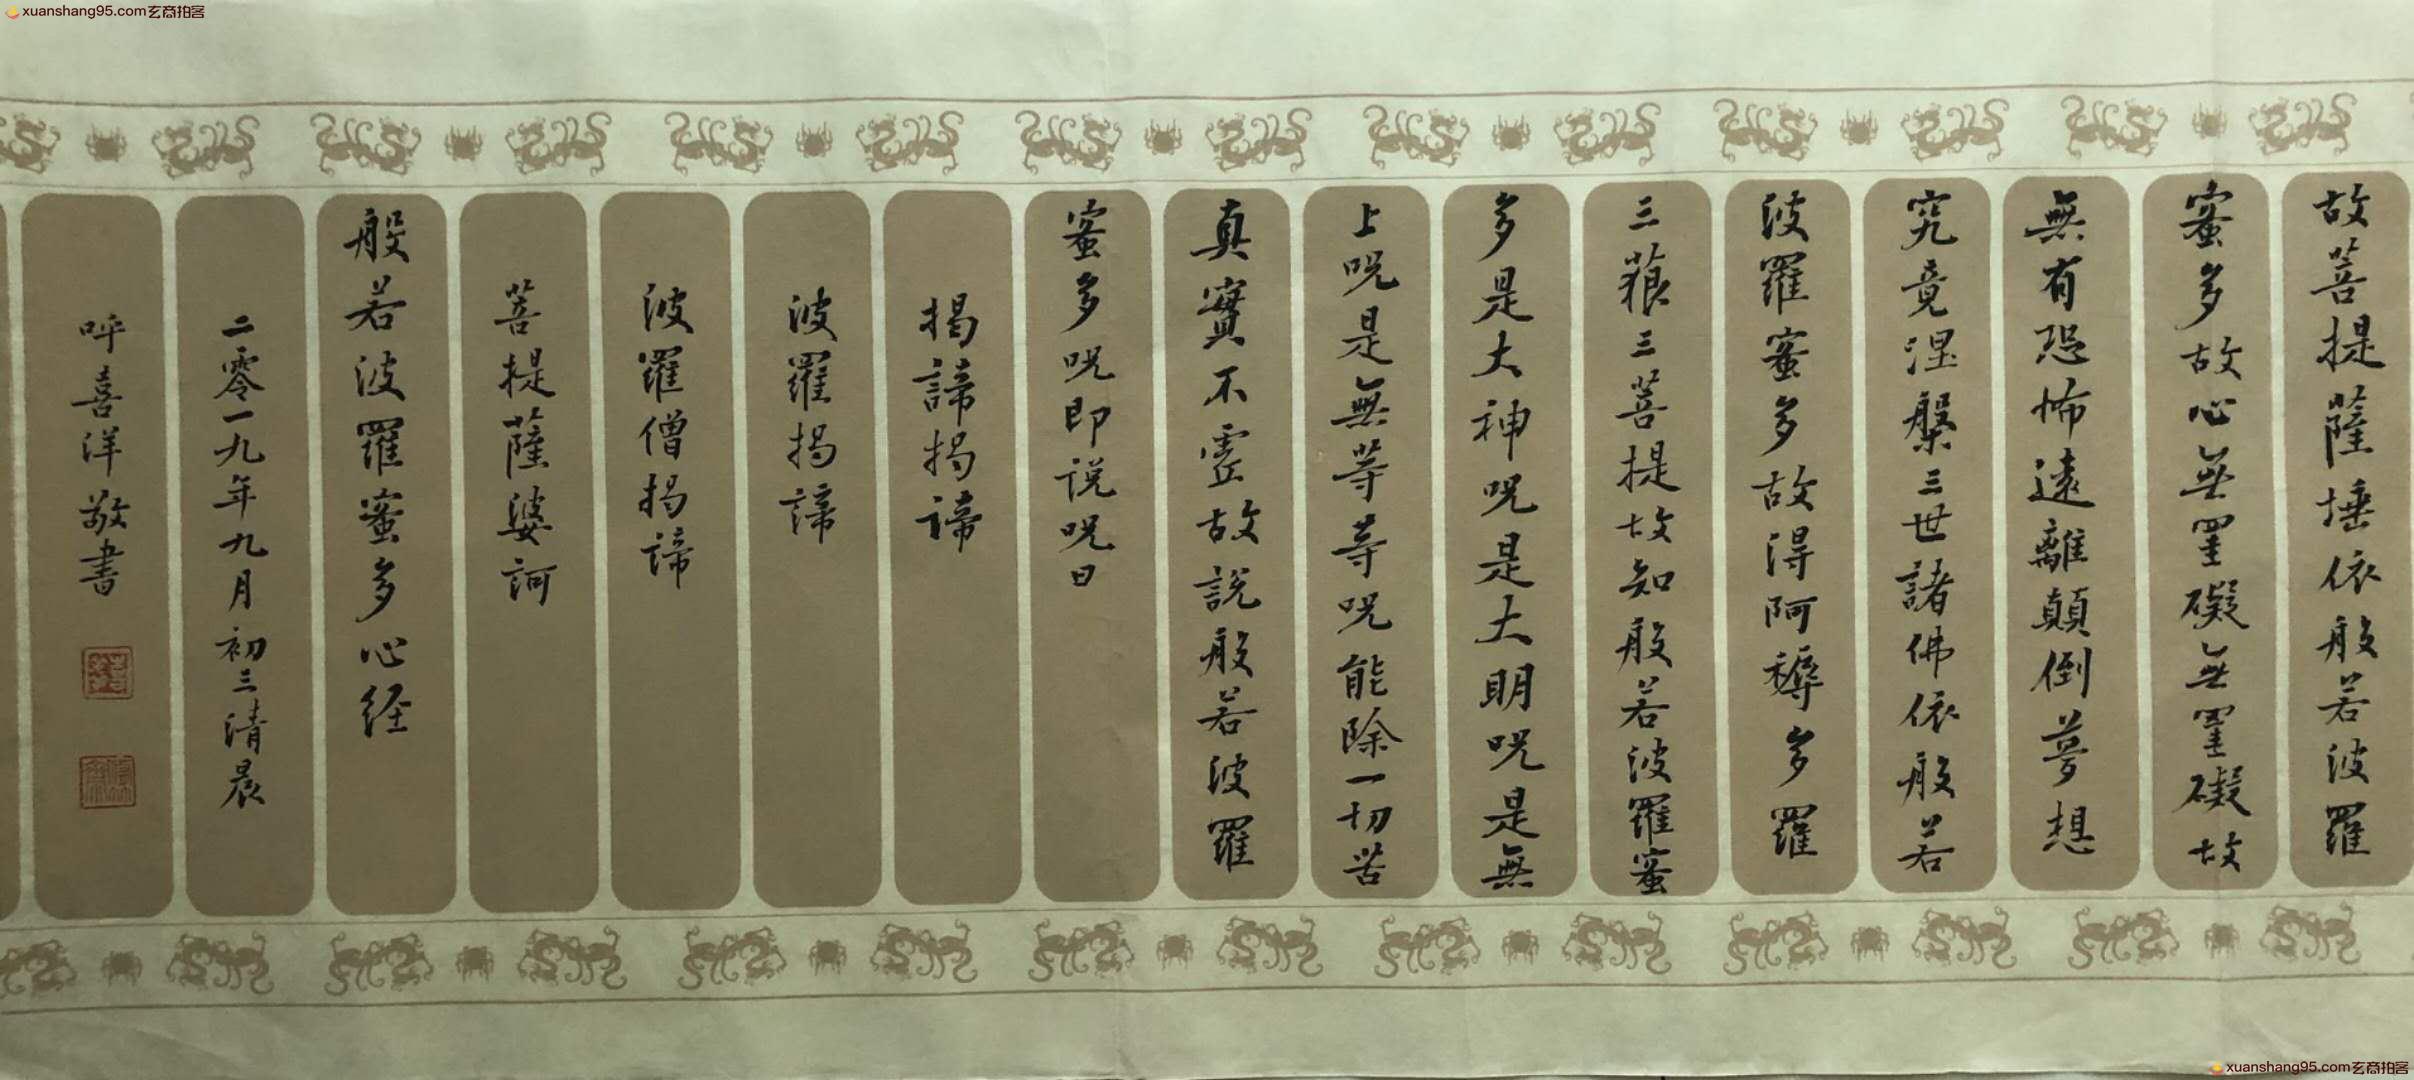 xuanshang95.com玄商拍客
故菩提薩埵依般若波羅
蜜多故心無罣礙無罣礙故
無有恐怖遠離顛倒夢想
究竟涅槃三世諸佛依般若
波羅蜜多故得阿耨多羅
三藐三菩提故知般若波羅蜜
多是大神呪是大明呪是無
上呪是無等等呪能除一切苦
真實不虛故說般若波羅
蜜多呪即说呪曰
揭諦揭諦
波羅揭諦
波羅僧揭諦
菩提薩婆訶
般若波羅蜜多心经
二零一九年九月初三清晨
呼喜洋敬書
xuanshang95.com玄商拍客